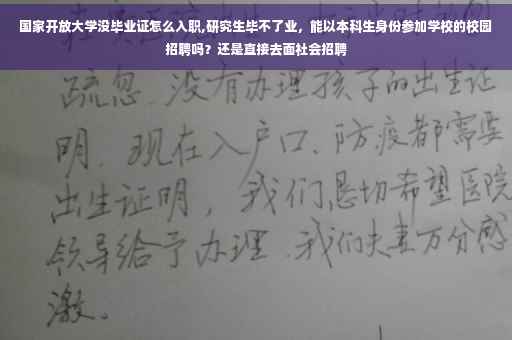 国家开放大学没毕业证怎么入职,研究生毕不了业，能以本科生身份参加学校的校园
招聘吗？还是直接去面社会招聘
疏忽、没有办理孩子的出生证
明、现在入户口、防疫都需要
出生证明，我们恳切希望医院
领导给予办理、我们夫妻万分感
激。